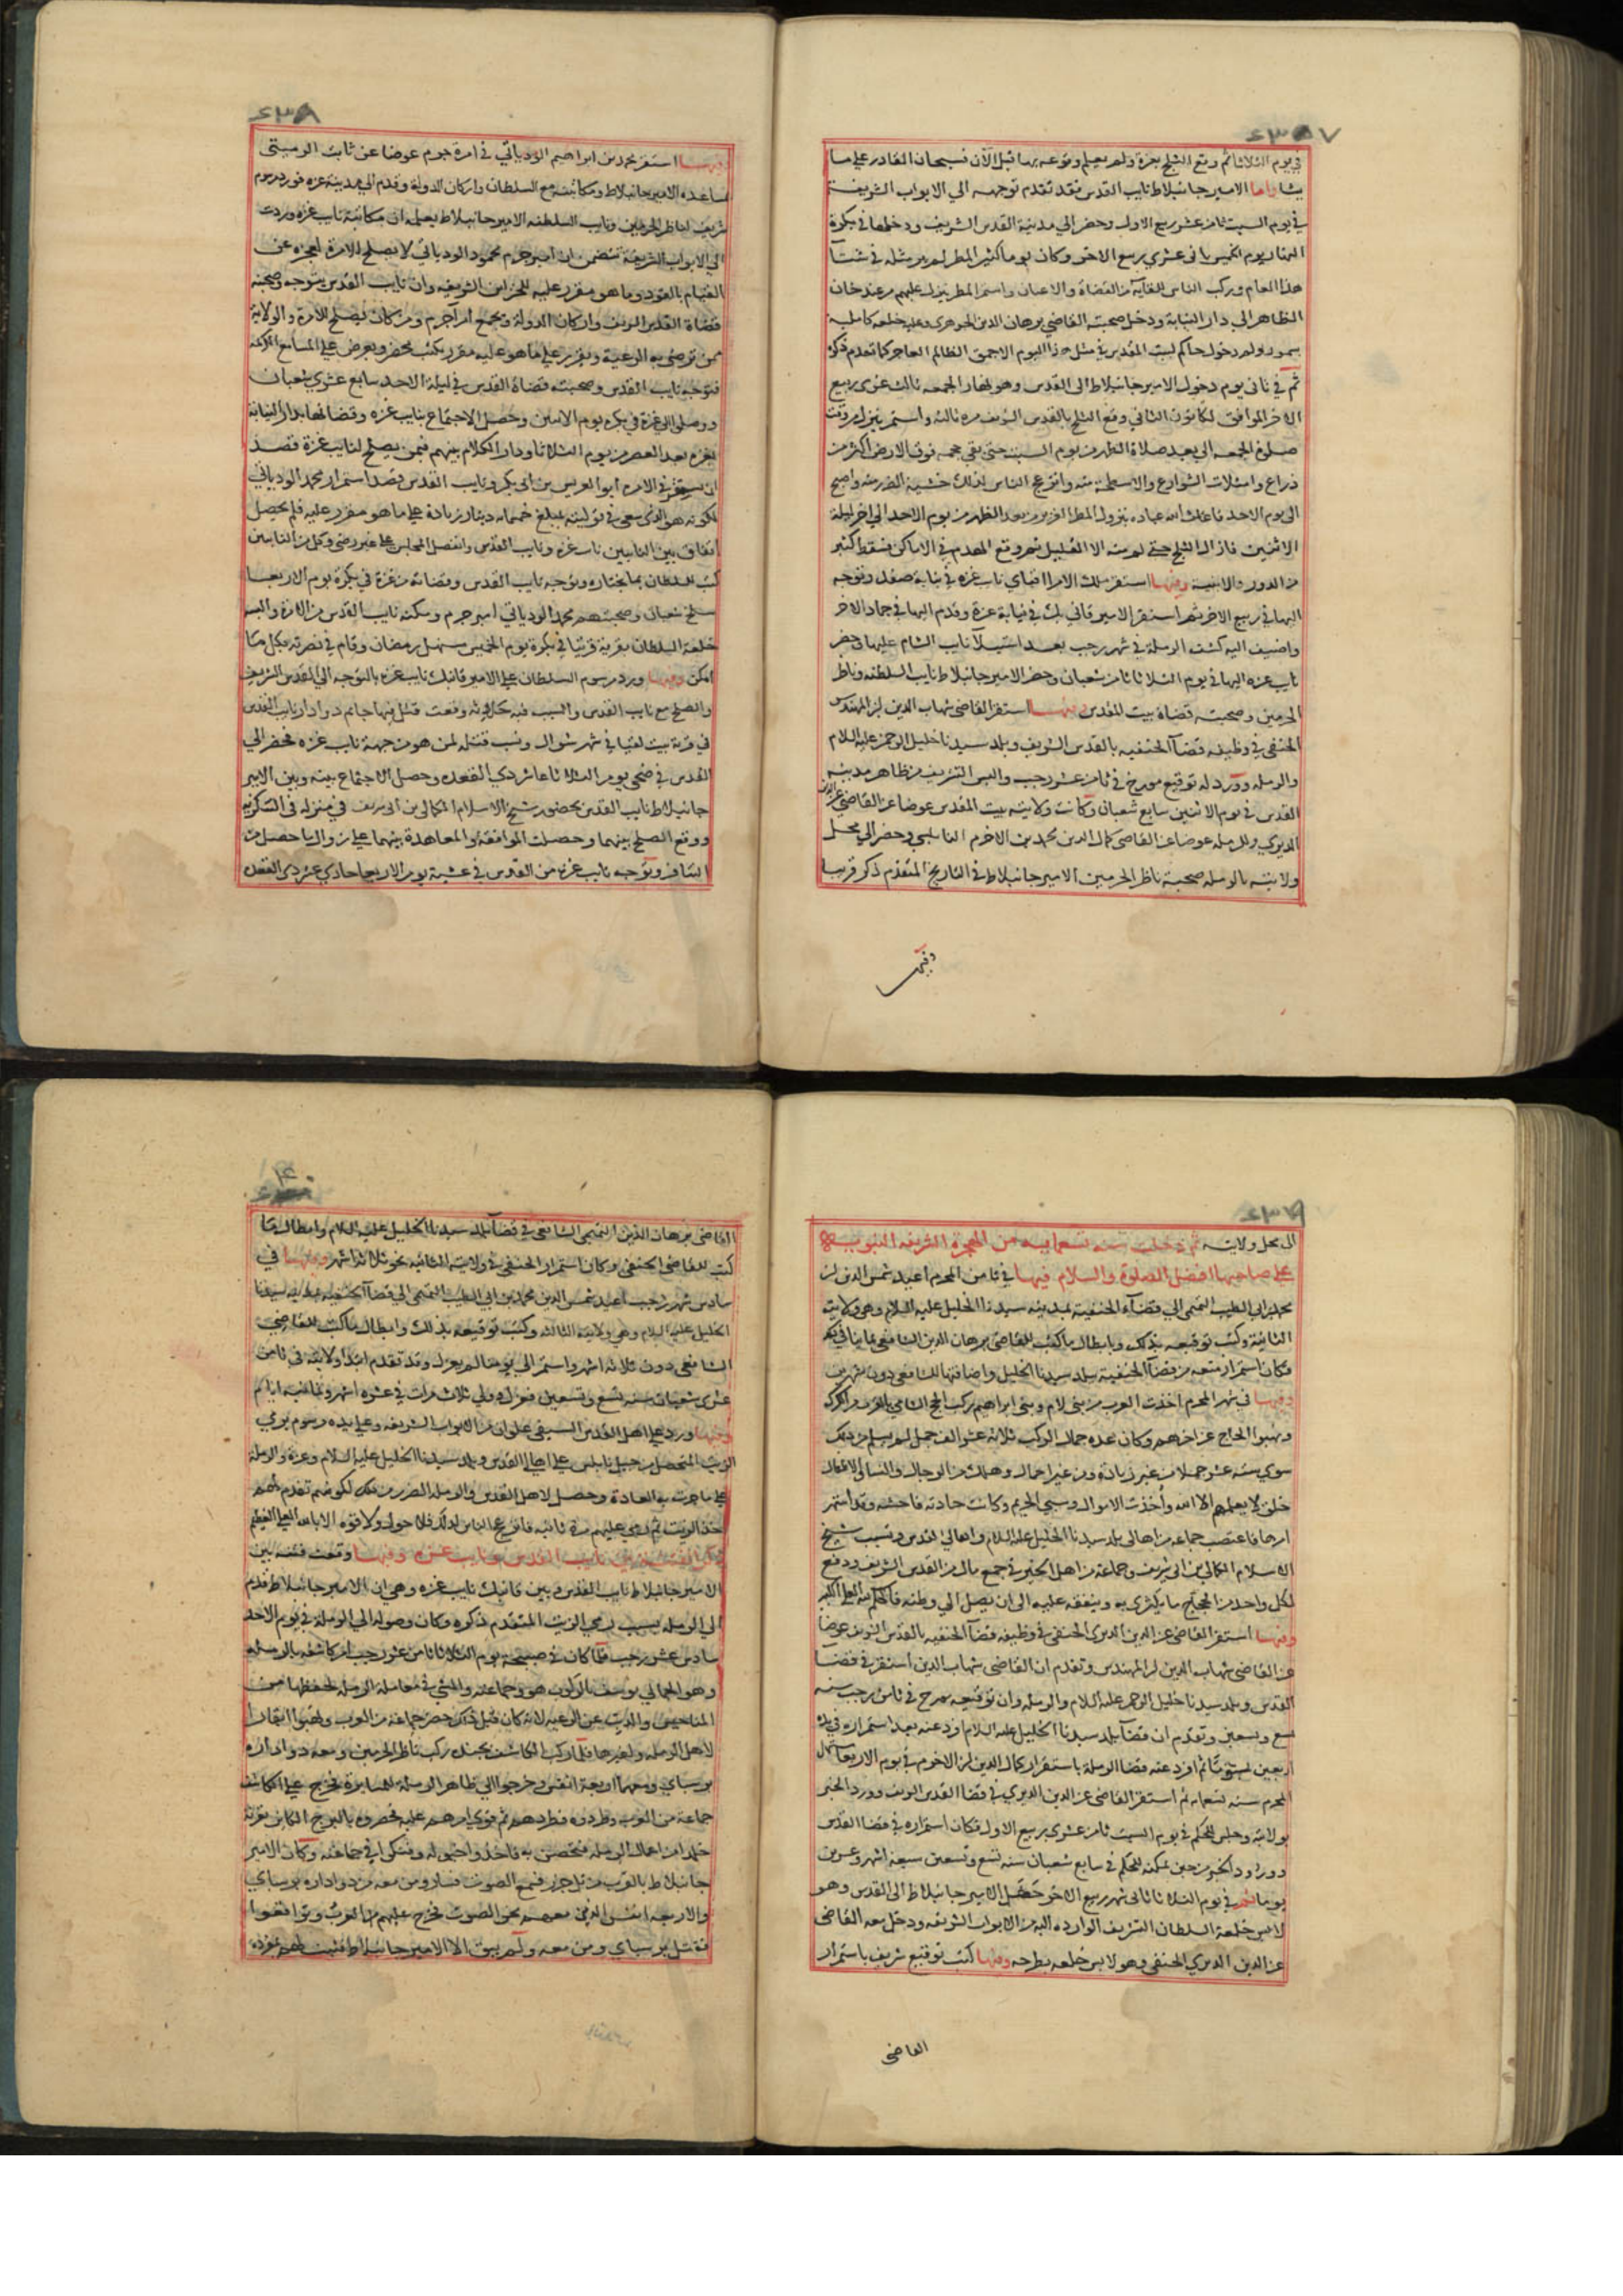 ٤٣٥٧
في يوم الثلاثا ثم وقع الثلج بغزة ولم يعلم وقوعه بها قبل الآن فسبحان القادر على ما
يشا واما الامير جانبلاط نايب القدس فقد تقدم توجهه الي الابواب الشريفة
في يوم السبت ثامن عشر ربيع الاول وحضر الي مدينة القدس الشريف ودخلها في بكرة
النهار يوم الخميس ثاني عشري ربيع الاخر وكان يوما كثير المطر لم ير مثله في شتآ
هذا العام وركب الناس للقايه من القضاة والاعيان واستمر المطر ينزل عليهم من عند خان
الظاهر الي دار النيابة ودخل صحبته القاضي برهان الدين الجوهري وعليه خلعه كاملية
بسمور ولم دخول حاكم لبيت المقدس في مثل هذا اليوم الا جمق الظالم الفاجر كما تقدم ذكره
ثم في ثاني يوم دخول الامير جانبلاط الى القدس وهو نهار الجمعه ثالث عشري ربيع
الاخر الموافق لكانون الثاني وقع الثلج بالقدس الشريف مره ثالثه واستمر ينزل من وقت
صلوة الجمعه الي بعد صلاة الظهر من يوم السبت حتى بقي حجمه فوق الارض اكثر من
ذراع وامتلات الشوارع والاسطحة منه وانزعج الناس لذلك خشية الضرر منه واصبح
الى يوم الاحد فاغاث الله عباده بنزول المطر الغزير من بعد الظهر من يوم الاحد الي اخر ليلة
الاثنين فازال الثلج حتى لم منه الا القليل ثم وقع الهدم في الاماكن فسقط كثير
من الدور والابنية وفيها استقر ملك الامرا اقباي نايب غزه في نيابة صفد وتوجه
اليها في ربيع الاخر ثم استقر الامير قاني بك في نيابة غزة وقدم اليها في جماد الاخر
واضيف اليه كشف الرملة في شهر رجب بعد استيلآ نايب الشام عليها وحضر
نايب غزه اليها في يوم الثلاثا ثامن شعبان وحضر الامير جانبلاط نايب السلطنه وناظر
الحرمين وصحبته قضاة بيت المقدس وفيها استقر القاضي شهاب الدين بن المهندس
الحنفي في وظيفه قضآ الحنفيه بالقدس الشريف وبلد سيدنا خليل الرحمن عليه السلام
والرمله وورد له توقيع مورخ في ثامن عشر رجب والبس التشريف من ظاهر مدينه
القدس في يوم الاثنين سابع شعبان وكانت ولايته بيت المقدس عوضا عن القاضي عز الدين
الديري وللرمله عوضا عن القاضي كمال الدين محمد بن الاخرم النابلسي وحضر الي محل
ولايته بالرمله صحبة ناظر الحرمين الامير جانبلاط في التاريخ المتقدم ذكر قريبا
وفيها
٤٣٨
وفيها استقر محمد بن ابراهيم الودياتي في امرة جرم عوضا عن ثابت الرميتي
ساعده الامير جانبلاط ومكاتبته مع السلطان واركان الدولة وقدم الي مدينة غزه فورد مرسوم
شريف لناظر الحرمين ونايب السلطنه الامير جانبلاط يعلمه ان مكاتبة نايب غزه وردت
الي الابواب الشريفة تتضمن ان امير جرم محمود الودياتي لا يصلح للامرة لعجزه عن
القيام بالعود وما هو مقرر عليه للخزاين الشريفه وان نايب القدس يتوجه وصحبته
قضاة القدس الشريف واركان الدولة ويجمع امرآ جرم ومن كان يصلح للامرة والولاية
ممن ترضى به الرعية ويقرر علي ما هو عليه مقرر يكتب محضر ويعرض على المسامع الكريمه
فتوجه نايب القدس وصحبته قضاة القدس في ليلة الاحد سابع عشري شعبان
ووصلى الي غزة في بكره يوم الاثنين وحصل الاجتماع بنايب غزه وقضاتها بدار النيابة
بغزه بعد العصر من يوم الثلاثا ودار الكلام بينهم فيمن يصلح لنايب غزة قصد
ان يستقر في الامره ابو العريس بن ابي بكر ونايب القدس قصد استمرار محمد الودياتي
لكونه هو الذي سعى في توليته بمبلغ خمسمايه دينار زيادة علي ما هو مقرر عليه فلم يحصل
اتفاق بين النايبين نايب غزه ونايب القدس وانفصل المجلس على غير رضى وكل من النايبين
كتب للسلطان بما يختاره وتوجه نايب القدس وقضاته من غزة في بكرة يوم الاربعا
سلخ شعبان وصحبتهم محمد الودياتي امير جرم ومكنه نايب القدس من الامرة والبسه
خلعة السلطان بقرية قريتا في بكرة يوم الخميس مستهل رمضان وقام في نصرته بكل ما
امكن وفيها ورد مرسوم السلطان علي الامير قانبك نايب غزه بالتوجه الي القدس الشريف
والصلح مع نايب القدس والسبب فيه حادثه وقعت قتل فيها جانم دوادار نايب القدس
في قرية بيت لقيا في شهر شوال ونسب قتله لمن هو من جهة نايب غزه فحضر الي
القدس في ضحى يوم الثلاثا عاشر ذي القعده وحصل الاجتماع بينه وبين الامير
جانبلاط نايب القدس بحضور شيخ الاسلام الكمالي بن ابي شريف في منزله في التنكزيه
ووقع الصلح بينهما وحصلت الموافقه والمعاهدة بينهما علي زوال ما حصل من
التنافر وتوجه نايب غزه من القدس في عشية يوم الاربعا حادي عشر ذي القعده
٤٣٩
الى محل ولايته ثم دخلت سنه تسعمايه من الهجرة الشريفه النبويه
علي صاحبها افضل الصلوة والسلام فيها في ثامن المحرم اعيد شمس الدين بن
محمد ابي الطيب التميمي الي قضآء الحنفيه بمدينه سيدنا الخليل عليه السلام وهي ولايته
الثانية وكتب توقيعه بذلك وبابطال ما كتب للقاضي برهان الدين الشافعي بما ينافي
فكان استمرار منعه من قضآ الحنفيه ببلد سيدنا الخليل واضافتها للشافعي دون شهرين
وفيها في شهر المحرم اخذت العرب من بني لام وبني ابراهيم ركب الحج الشامي بالقرب من الكرك
ونهبوا الحاج عن اخرهم وكان عده جمال الركب ثلاثة عشر الف جمل لم يسلم من ذلك
سوي سته عشر جملا من غير زيادة ومن غير احمال وهلك من الرجال والنسا والاطفال
خلق لا يعلمهم الا الله وأخذت الاموال وسبي الحريم وكانت حادثه فاحشه وقد استمر
امرها فاعتصب جماعه من اهالى بلد سيدنا الخليل عليه السلام واهالى القدس وتسبب شيخ
الاسلام الكمالي بن ابي شريف وجماعة من اهل الخير في جمع مال من القدس الشريف ودفع
لكل واحد من الحجاج ما يكتري به وينفقه عليه الى ان يصل الي وطنه فالحكم لله العلي الكبير
وفيها استقر القاضي عز الدين الديري الحنفي في وظيفه قضآ الحنفيه بالقدس الشريف عوضا
عن القاضي شهاب الدين بن المهندس وتقدم ان القاضي شهاب الدين استقر في قضا
القدس وبلد سيدنا خليل الرحمن عليه السلام والرمله وان توقيعه مورخ في ثامن رجب سنه
تسع وتسعين وتقدم ان قضآ بلد سيدنا الخليل عليه السلام افرد عنه بعد استمراره في يده
اربعين يوما ثم افرد عنه قضا الرملة باستقرار كمال الدين بن الاخرم في يوم الاربعآ
المحرم سنه تسعمايه ثم استقر القاضي عز الدين الديري في قضا القدس الشريف وورد الخبر
بولايته وجلس للحكم في يوم السبت ثامن عشري ربيع الاول فكان استمراره في قضا القدس
وورد الخبر من حين تمكنه للحكم في سابع شعبان سنه تسع وتسعين سبعة اشهر وعشرين
يوما ثم في يوم الثلاثا ثاني شهر ربيع الاخر دخل الامير جانبلاط الى القدس وهو
لابس خلعة السلطان الشريف الوارده اليه من الابواب الشريفه ودخل معه القاضي
عز الدين الديري الحنفي وهو لابس خلعه بطرحه وفيها كتب توقيع شريف باستمرار
القاضي
٤٤٠
القاضي برهان الدين التميمي الشافعي في قضآ بلد سيدنا الخليل عليه السلام وابطال ما
كتب للقاضي الحنفي وكان استمرار الحنفي في ولايته الثانيه نحو ثلاثة اشهر وفيها في
سادس شهر رجب اعيد شمس الدين محمد بن ابي الطيب التميمي الي قضآ الحنفيه بمدينه سيدنا
الخليل عليه السلام وهي ولايته الثالثه وكتب توقيعه بذلك وابطال ما كتب للقاضي
الشافعي دون ثلاثة اشهر واستمر الي يومنا لم يعزل وقد تقدم ابتدا ولايته في ثامن
عشري شعبان سنه تسع وتسعين فعزل وولي ثلاث مرات في عشره اشهر وثمانيه ايام
وفيها ورد علي اهل القدس السيفي علوان من الابواب الشريفه وعلى يده مرسوم برمي
الزيت المتحصل من جبل نابلس علي اهالي القدس وبلد سيدنا الخليل عليه السلام وغزة والرملة
علي ما جرت به العادة وحصل لاهل القدس والرمله الضرر من ذلك لكونهم تقدم لهم
اخذ الزيت ثم رمي عليهم مرة ثانيه فانزعج الناس لذلك فلا حول ولا قوه الا بالله العلي العظيم
ذكر الفتنة بين نايب القدس ونايب غزه وفيها وقعت فتنه بين
الامير جانبلاط نايب القدس وبين قانبك نايب غزه وهي ان الامير جانبلاط قدم
الي الرمله بسبب رمي الزيت المتقدم ذكره وكان وصوله الي الرملة في يوم الاحد
سادس عشر رجب فلما كان في صبيحة يوم الثلاثا ثامن عشر رجب امر كاشفه بالرمله
وهو الجمالي يوسف بالركوب هو وجماعته والمشي في معاملة الرملة لحفظها من
المناحيس والذب عن الرعيه لانه كان قبل ذلك حضر جماعة من العرب ونهبوا ابقارا
لاهل الرمله ولغيرها فلما ركب الكاشف بجنده ركب ناظر الحرمين ومعه دواداره
برسباي ومعهما اربعة انفس وخرجوا الي ظاهر الرملة للمسايرة فخرج علي الكاشف
جماعة من العرب وطردوه فطردهم ثم قوي امرهم عليه فحصروه بالبرج الكاين بقرية
خلدا من اعمال الرمله فتحصن به فاخذوا خيوله وفتكوا في جماعته وكان الامير
جانبلاط بالقرب من تل جزر فسمع الصوت فسار ومن معه من دواداره برسباي
والاربعه انفس الذين معهم نحو الصوت فخرج عليهم العرب وتواقعوا
فقتل برسباي ومن معه ولم يبق الا الامير جانبلاط فثبت لهم بمفرده